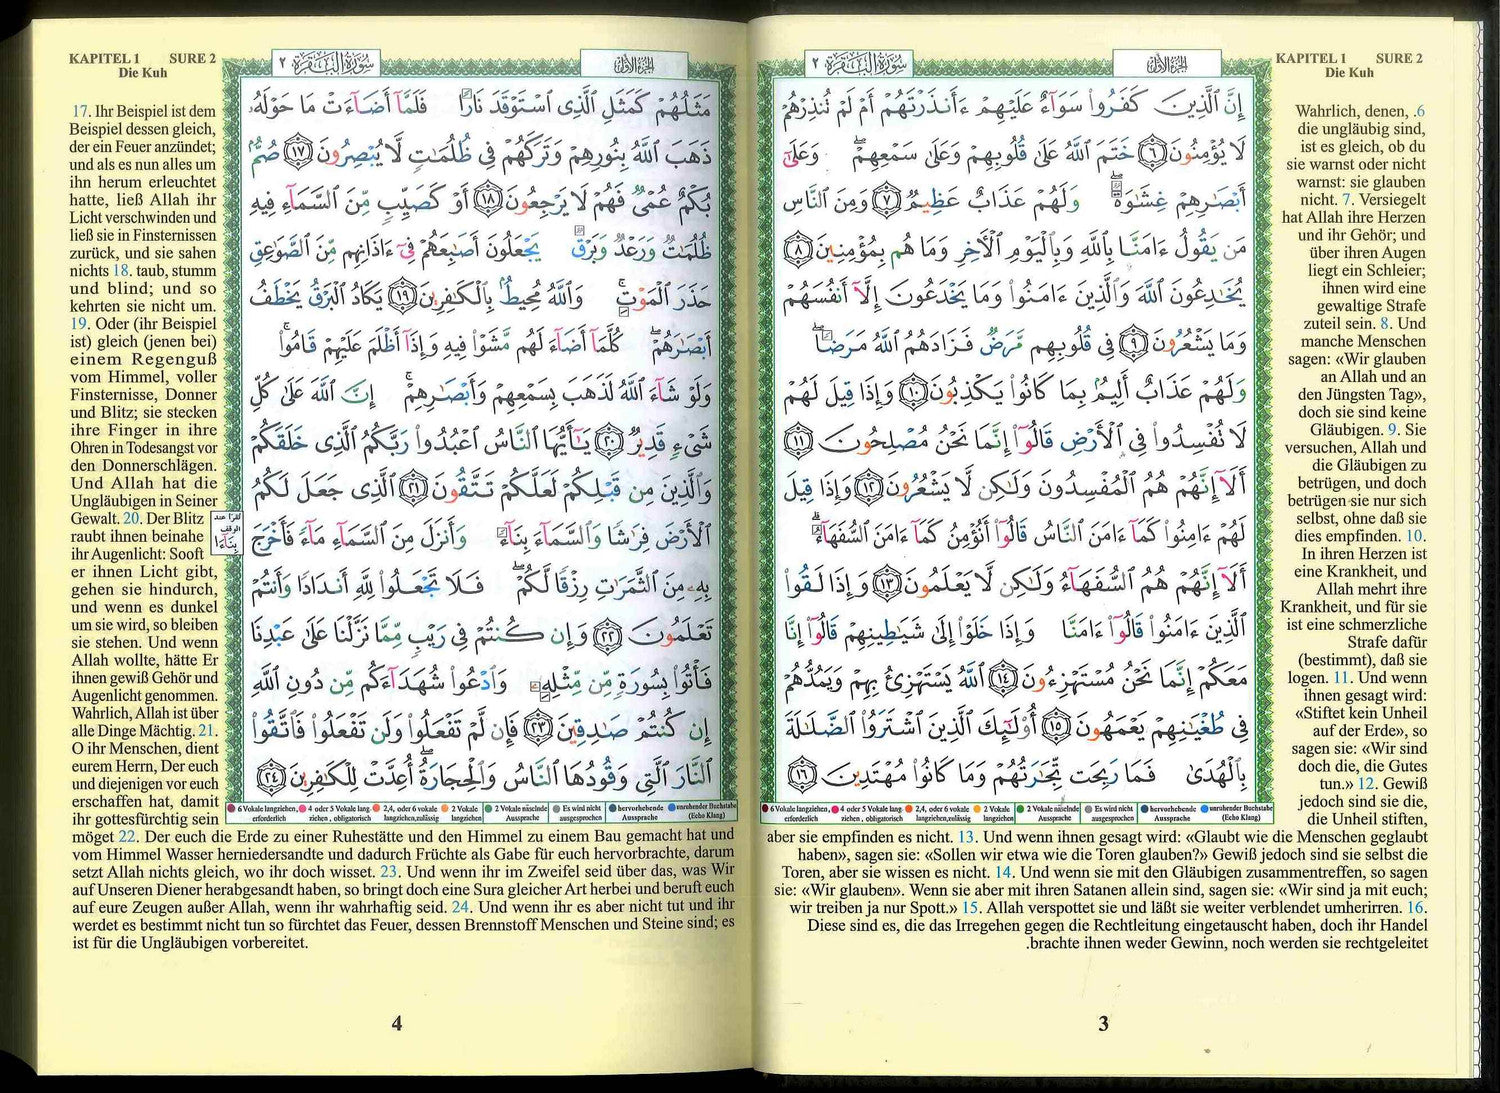 KAPITEL 1 SURE 2
Die Kuh
سُورَةُ الْبَقَرَةِ ٢
الجُزءُ الأوّلُ
إِنَّ ٱلَّذِينَ كَفَرُوا۟ سَوَآءٌ عَلَيْهِمْ ءَأَنذَرْتَهُمْ أَمْ لَمْ تُنذِرْهُمْ
لَا يُؤْمِنُونَ ٦ خَتَمَ ٱللَّهُ عَلَىٰ قُلُوبِهِمْ وَعَلَىٰ سَمْعِهِمْ ۖ وَعَلَىٰٓ
أَبْصَٰرِهِمْ غِشَٰوَةٌ ۖ وَلَهُمْ عَذَابٌ عَظِيمٌ ٧ وَمِنَ ٱلنَّاسِ
مَن يَقُولُ ءَامَنَّا بِٱللَّهِ وَبِٱلْيَوْمِ ٱلْءَاخِرِ وَمَا هُم بِمُؤْمِنِينَ ٨
يُخَٰدِعُونَ ٱللَّهَ وَٱلَّذِينَ ءَامَنُوا۟ وَمَا يَخْدَعُونَ إِلَّآ أَنفُسَهُمْ
وَمَا يَشْعُرُونَ ٩ فِى قُلُوبِهِم مَّرَضٌ فَزَادَهُمُ ٱللَّهُ مَرَضًا ۖ
وَلَهُمْ عَذَابٌ أَلِيمٌۢ بِمَا كَانُوا۟ يَكْذِبُونَ ١٠ وَإِذَا قِيلَ لَهُمْ
لَا تُفْسِدُوا۟ فِى ٱلْأَرْضِ قَالُوٓا۟ إِنَّمَا نَحْنُ مُصْلِحُونَ ١١
أَلَآ إِنَّهُمْ هُمُ ٱلْمُفْسِدُونَ وَلَٰكِن لَّا يَشْعُرُونَ ١٢ وَإِذَا قِيلَ
لَهُمْ ءَامِنُوا۟ كَمَآ ءَامَنَ ٱلنَّاسُ قَالُوٓا۟ أَنُؤْمِنُ كَمَآ ءَامَنَ ٱلسُّفَهَآءُ ۗ
أَلَآ إِنَّهُمْ هُمُ ٱلسُّفَهَآءُ وَلَٰكِن لَّا يَعْلَمُونَ ١٣ وَإِذَا لَقُوا۟
ٱلَّذِينَ ءَامَنُوا۟ قَالُوٓا۟ ءَامَنَّا وَإِذَا خَلَوْا۟ إِلَىٰ شَيَٰطِينِهِمْ قَالُوٓا۟ إِنَّا
مَعَكُمْ إِنَّمَا نَحْنُ مُسْتَهْزِءُونَ ١٤ ٱللَّهُ يَسْتَهْزِئُ بِهِمْ وَيَمُدُّهُمْ
فِى طُغْيَٰنِهِمْ يَعْمَهُونَ ١٥ أُو۟لَٰٓئِكَ ٱلَّذِينَ ٱشْتَرَوُا۟ ٱلضَّلَٰلَةَ
بِٱلْهُدَىٰ فَمَا رَبِحَت تِّجَٰرَتُهُمْ وَمَا كَانُوا۟ مُهْتَدِينَ ١٦
Wahrlich, denen, .6
die ungläubig sind,
ist es gleich, ob du
sie warnst oder nicht
warnst: sie glauben
nicht. 7. Versiegelt
hat Allah ihre Herzen
und ihr Gehör; und
über ihren Augen
liegt ein Schleier;
ihnen wird eine
gewaltige Strafe
zuteil sein. 8. Und
manche Menschen
sagen: «Wir glauben
an Allah und an
den Jüngsten Tag»,
doch sie sind keine
Gläubigen. 9. Sie
versuchen, Allah und
die Gläubigen zu
betrügen, und doch
betrügen sie nur sich
selbst, ohne daß sie
dies empfinden. 10.
In ihren Herzen ist
eine Krankheit, und
Allah mehrt ihre
Krankheit, und für sie
ist eine schmerzliche
Strafe dafür
(bestimmt), daß sie
logen. 11. Und wenn
ihnen gesagt wird:
«Stiftet kein Unheil
auf der Erde», so
sagen sie: «Wir sind
doch die, die Gutes
tun.» 12. Gewiß
jedoch sind sie die,
die Unheil stiften,
6 Vokale langziehen, erforderlich
4 oder 5 Vokale lang ziehen, obligatorisch
2,4, oder 6 vokale langziehen,zulässig
2 Vokale langziehen
2 Vokale näselnde Aussprache
Es wird nicht ausgesprochen
hervorhebende Aussprache
unruhender Buchstabe (Echo Klang)
aber sie empfinden es nicht. 13. Und wenn ihnen gesagt wird: «Glaubt wie die Menschen geglaubt
haben», sagen sie: «Sollen wir etwa wie die Toren glauben?» Gewiß jedoch sind sie selbst die
Toren, aber sie wissen es nicht. 14. Und wenn sie mit den Gläubigen zusammentreffen, so sagen
sie: «Wir glauben». Wenn sie aber mit ihren Satanen allein sind, sagen sie: «Wir sind ja mit euch;
wir treiben ja nur Spott.» 15. Allah verspottet sie und läßt sie weiter verblendet umherirren. 16.
Diese sind es, die das Irregehen gegen die Rechtleitung eingetauscht haben, doch ihr Handel
.brachte ihnen weder Gewinn, noch werden sie rechtgeleitet
3
KAPITEL 1 SURE 2
Die Kuh
سُورَةُ الْبَقَرَةِ ٢
الجُزءُ الأوّلُ
مَثَلُهُمْ كَمَثَلِ ٱلَّذِى ٱسْتَوْقَدَ نَارًا فَلَمَّآ أَضَآءَتْ مَا حَوْلَهُۥ
ذَهَبَ ٱللَّهُ بِنُورِهِمْ وَتَرَكَهُمْ فِى ظُلُمَٰتٍ لَّا يُبْصِرُونَ ١٧ صُمٌّۢ
بُكْمٌ عُمْىٌ فَهُمْ لَا يَرْجِعُونَ ١٨ أَوْ كَصَيِّبٍ مِّنَ ٱلسَّمَآءِ فِيهِ
ظُلُمَٰتٌ وَرَعْدٌ وَبَرْقٌ يَجْعَلُونَ أَصَٰبِعَهُمْ فِىٓ ءَاذَانِهِم مِّنَ ٱلصَّوَٰعِقِ
حَذَرَ ٱلْمَوْتِ ۚ وَٱللَّهُ مُحِيطٌۢ بِٱلْكَٰفِرِينَ ١٩ يَكَادُ ٱلْبَرْقُ يَخْطَفُ
أَبْصَٰرَهُمْ ۖ كُلَّمَآ أَضَآءَ لَهُم مَّشَوْا۟ فِيهِ وَإِذَآ أَظْلَمَ عَلَيْهِمْ قَامُوا۟ ۚ
وَلَوْ شَآءَ ٱللَّهُ لَذَهَبَ بِسَمْعِهِمْ وَأَبْصَٰرِهِمْ ۚ إِنَّ ٱللَّهَ عَلَىٰ كُلِّ
شَىْءٍ قَدِيرٌ ٢٠ يَٰٓأَيُّهَا ٱلنَّاسُ ٱعْبُدُوا۟ رَبَّكُمُ ٱلَّذِى خَلَقَكُمْ
وَٱلَّذِينَ مِن قَبْلِكُمْ لَعَلَّكُمْ تَتَّقُونَ ٢١ ٱلَّذِى جَعَلَ لَكُمُ
ٱلْأَرْضَ فِرَٰشًا وَٱلسَّمَآءَ بِنَآءً وَأَنزَلَ مِنَ ٱلسَّمَآءِ مَآءً فَأَخْرَجَ
بِهِۦ مِنَ ٱلثَّمَرَٰتِ رِزْقًا لَّكُمْ ۖ فَلَا تَجْعَلُوا۟ لِلَّهِ أَندَادًا وَأَنتُمْ
تَعْلَمُونَ ٢٢ وَإِن كُنتُمْ فِى رَيْبٍ مِّمَّا نَزَّلْنَا عَلَىٰ عَبْدِنَا
فَأْتُوا۟ بِسُورَةٍ مِّن مِّثْلِهِۦ وَٱدْعُوا۟ شُهَدَآءَكُم مِّن دُونِ ٱللَّهِ
إِن كُنتُمْ صَٰدِقِينَ ٢٣ فَإِن لَّمْ تَفْعَلُوا۟ وَلَن تَفْعَلُوا۟ فَٱتَّقُوا۟
ٱلنَّارَ ٱلَّتِى وَقُودُهَا ٱلنَّاسُ وَٱلْحِجَارَةُ ۖ أُعِدَّتْ لِلْكَٰفِرِينَ ٢٤
17. Ihr Beispiel ist dem
Beispiel dessen gleich,
der ein Feuer anzündet;
und als es nun alles um
ihn herum erleuchtet
hatte, ließ Allah ihr
Licht verschwinden und
ließ sie in Finsternissen
zurück, und sie sahen
nichts 18. taub, stumm
und blind; und so
kehrten sie nicht um.
19. Oder (ihr Beispiel
ist) gleich (jenen bei)
einem Regenguß
vom Himmel, voller
Finsternisse, Donner
und Blitz; sie stecken
ihre Finger in ihre
Ohren in Todesangst vor
den Donnerschlägen.
Und Allah hat die
Ungläubigen in Seiner
Gewalt. 20. Der Blitz
raubt ihnen beinahe
ihr Augenlicht: Sooft
er ihnen Licht gibt,
gehen sie hindurch,
und wenn es dunkel
um sie wird, so bleiben
sie stehen. Und wenn
Allah wollte, hätte Er
ihnen gewiß Gehör und
Augenlicht genommen.
Wahrlich, Allah ist über
alle Dinge Mächtig. 21.
O ihr Menschen, dient
eurem Herrn, Der euch
und diejenigen vor euch
erschaffen hat, damit
ihr gottesfürchtig sein
تُقرأ عند
الوقف
بِنَآءَا
6 Vokale langziehen, erforderlich
4 oder 5 Vokale lang ziehen, obligatorisch
2,4, oder 6 vokale langziehen,zulässig
2 Vokale langziehen
2 Vokale näselnde Aussprache
Es wird nicht ausgesprochen
hervorhebende Aussprache
unruhender Buchstabe (Echo Klang)
möget 22. Der euch die Erde zu einer Ruhestätte und den Himmel zu einem Bau gemacht hat und
vom Himmel Wasser herniedersandte und dadurch Früchte als Gabe für euch hervorbrachte, darum
setzt Allah nichts gleich, wo ihr doch wisset. 23. Und wenn ihr im Zweifel seid über das, was Wir
auf Unseren Diener herabgesandt haben, so bringt doch eine Sura gleicher Art herbei und beruft euch
auf eure Zeugen außer Allah, wenn ihr wahrhaftig seid. 24. Und wenn ihr es aber nicht tut und ihr
werdet es bestimmt nicht tun so fürchtet das Feuer, dessen Brennstoff Menschen und Steine sind; es
ist für die Ungläubigen vorbereitet.
4